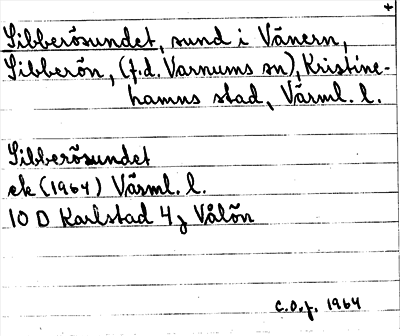 Sibberösundet, sund i Vänern,
Sibberön, (f.d. Varnums sn), Kristine-
hamns stad, Värml. l.
Sibberösundet
ek (1964) Värml. l.
10 D Karlstad 4 j Vålön
C.O.J. 1964